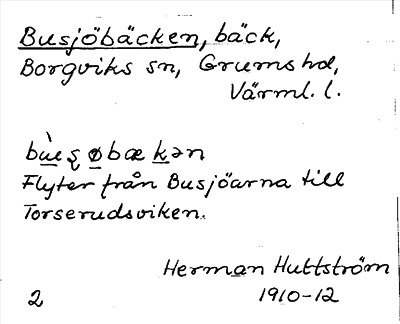 Busjöbäcken, bäck,
Borgviks sn, Grums hd,
Värml. l.
bùsøbækən
Flyter från Busjöarna till
Torserudsviken.
Herman Huttström
1910-12
2